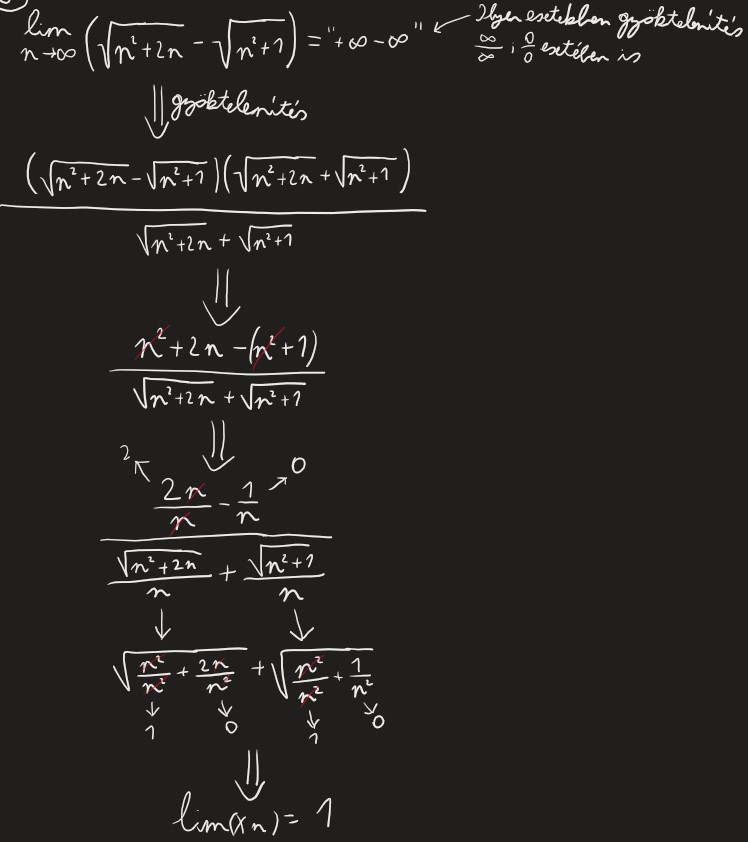 lim n→∞ (√(n²+2n) - √(n²+1)) = "+∞-∞" ← Ilyen esetekben gyöktelenítés
∞/∞ ; 0/0 esetében is
⇓ gyöktelenítés
(√(n²+2n) - √(n²+1))(√(n²+2n) + √(n²+1))
√(n²+2n) + √(n²+1)
⇓
n²+2n-(n²+1)
√(n²+2n) + √(n²+1)
⇓
2 0
2n/n - 1/n
√(n²+2n)/n + √(n²+1)/n
↓ ↓
√(n²/n² + 2n/n²) + √(n²/n² + 1/n²)
↓ ↓ ↓ ↓
1 0 1 0
⇓
lim(xn) = 1